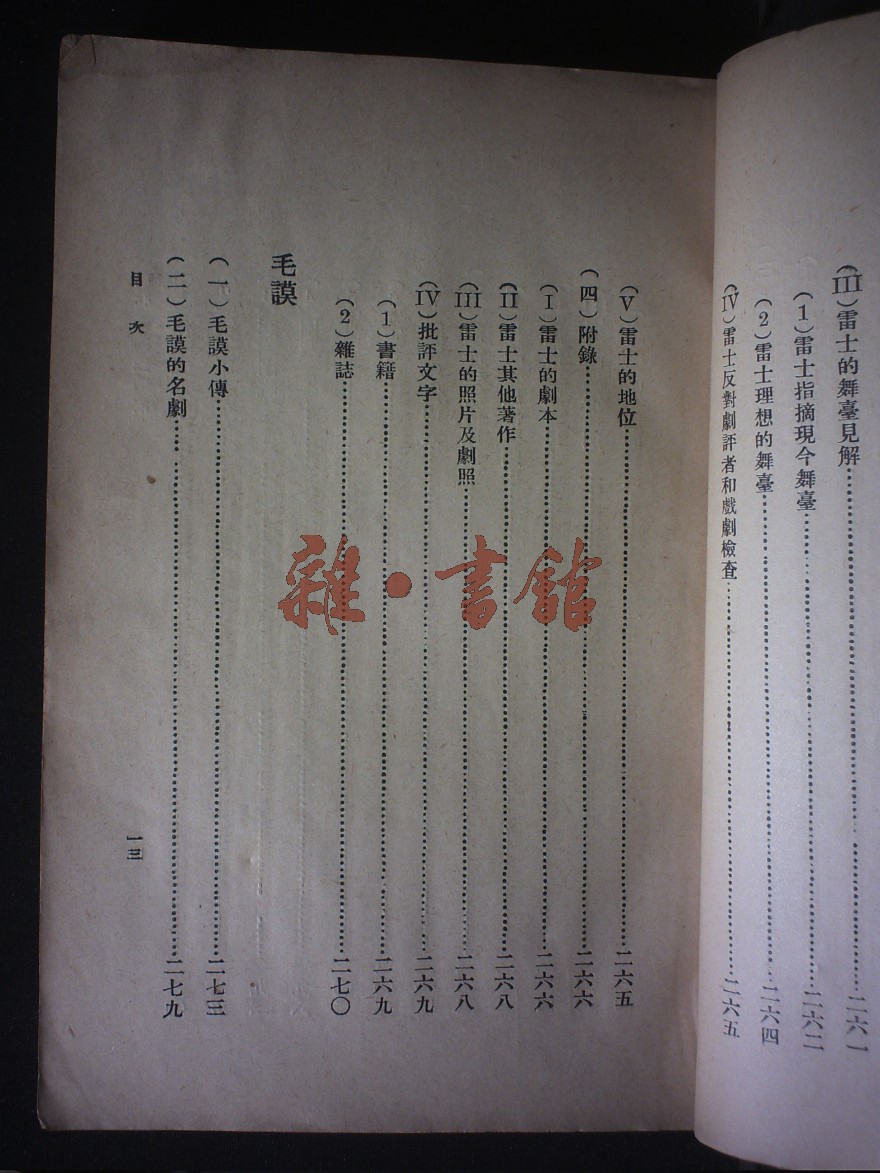 (III)雷士的舞臺見解……二六一
(1)雷士指摘現今舞臺……二六二
(2)雷士理想的舞臺……二六四
(IV)雷士反對劇評者和戲劇檢查……二六五
(V)雷士的地位……二六五
(四)附錄……二六六
(I)雷士的劇本……二六六
(II)雷士其他著作……二六八
(III)雷士的照片及劇照……二六八
(IV)批評文字……二六九
(1)書籍……二六九
(2)雜誌……二七〇
毛謨
(一)毛謨小傳……二七三
(二)毛謨的名劇……二七九
目次
一三
雜·書館